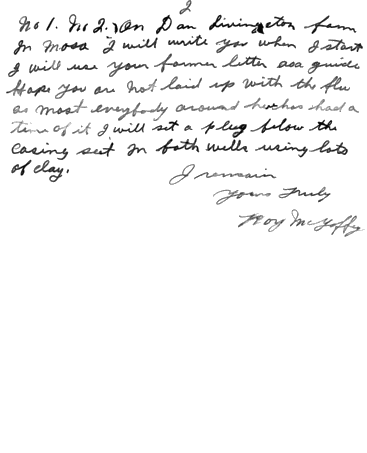 2
No 1. No 2. On Dan Livingston farm
In Mosa I will write you when I start
I will use your former letter as a guide
Hope you are not laid up with the flu
as most everybody around here has had a
time of it I will set a plug below the
casing seat in both wells using lots
of clay.
I remain
Yours Truly
Roy